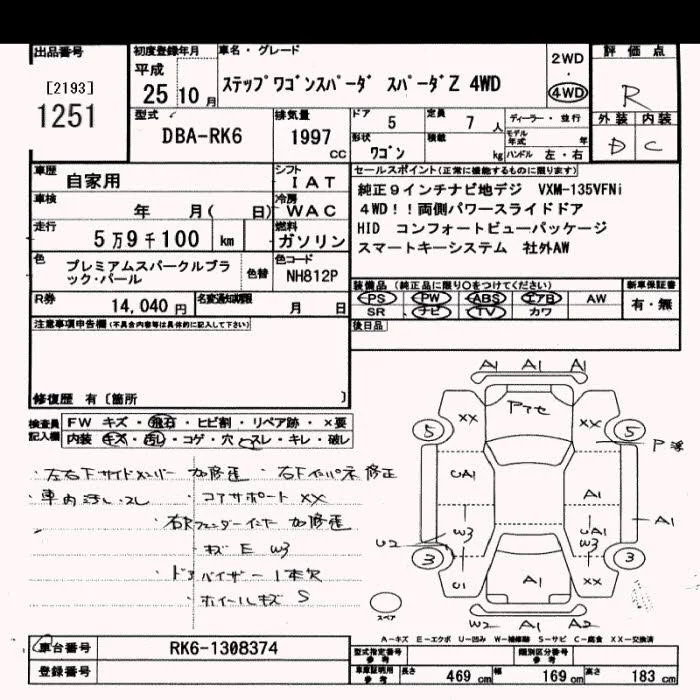 出品番号 初度登録年月 車名・グレード 2WD 評価点
[2193] 平成 ステップワゴンスパーダ スパーダZ 4WD ・ R
1251 25 10月 4WD 外装 内装
型式 排気量 ドア 5 定員 7人 ディーラー・並行 D C
DBA-RK6 1997CC 形状 ワゴン 積載 kg モデル年式 年
ハンドル 左・右
車歴 自家用 シフト IAT セールスポイント(正常に機能するものに限ります)
車検 年 月( 日) 冷房 WAC 純正9インチナビ地デジ VXM-135VFNi
走行 5万9千100 km 燃料 ガソリン 4WD!!両側パワースライドドア
HID コンフォートビューパッケージ
スマートキーシステム 社外AW
色 プレミアムスパークルブラック・パール 色替 色コード NH812P
装備品(純正品に限り○をつけてください) 新車保証書
PS PW ABS エアB AW 有・無
SR ナビ TV カワ
R券 14,040円 名変通知期限 月 日
後日品
注意事項申告欄(不具合内容等は具体的に記入して下さい)
修復歴 有〔箇所 〕
検査員記入欄 FW キズ・飛石・ヒビ割・リペア跡・×要
内装 キズ・汚し・コゲ・穴・スレ・キレ・破レ
・左右下サイドメンバー 加修歪 ・右下インパネ修正
・車内汚レ、スレ ・コアサポートXX
・右Rフェンダーインナー 加修歪
・キズ E W3
・ドアバイザー1本欠
・ホイールキズ S
A1 A1 A1
XX アセ XX
5 5
UA1 A1
A1
W3 UA1
W3
U2
3 3
U1 A1 XX
W2 A1 A2
スペア
A−キズ E−エクボ U−凹み W−補修跡 S−サビ C−腐食 XX−交換済
車台番号 RK6-1308374 型式指定番号 参考 類別区分番号 参考
登録番号 車庫証明用 参考 長さ 469cm 幅 169cm 高さ 183cm